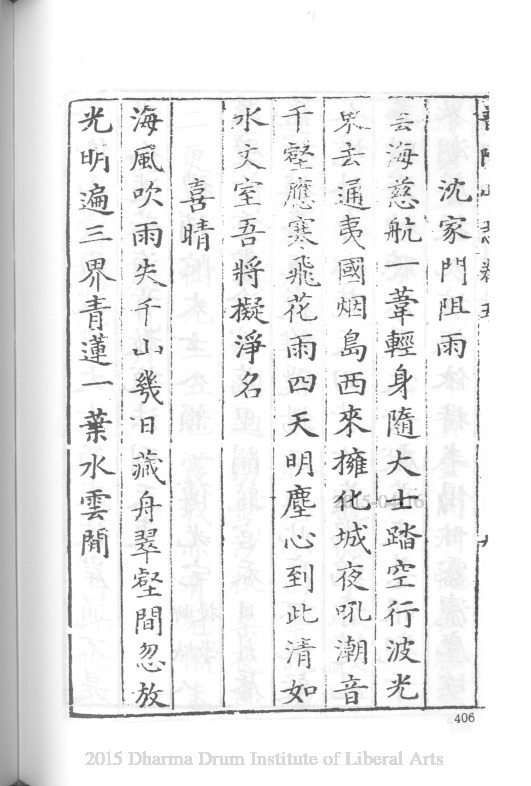 沈家門阻雨
海慈航一葦輕身隨大士踏空行波光
去通夷國烟島西來擁化城夜吼潮音
千壑應寒飛花雨四天明塵心到此清如
水丈室吾將擬淨名
喜晴
海風吹雨失千山幾日藏舟翠壑間忽放
光明遍三界青蓮一葉水雲閒
406
2015 Dharma Drum Institute of Liberal Arts